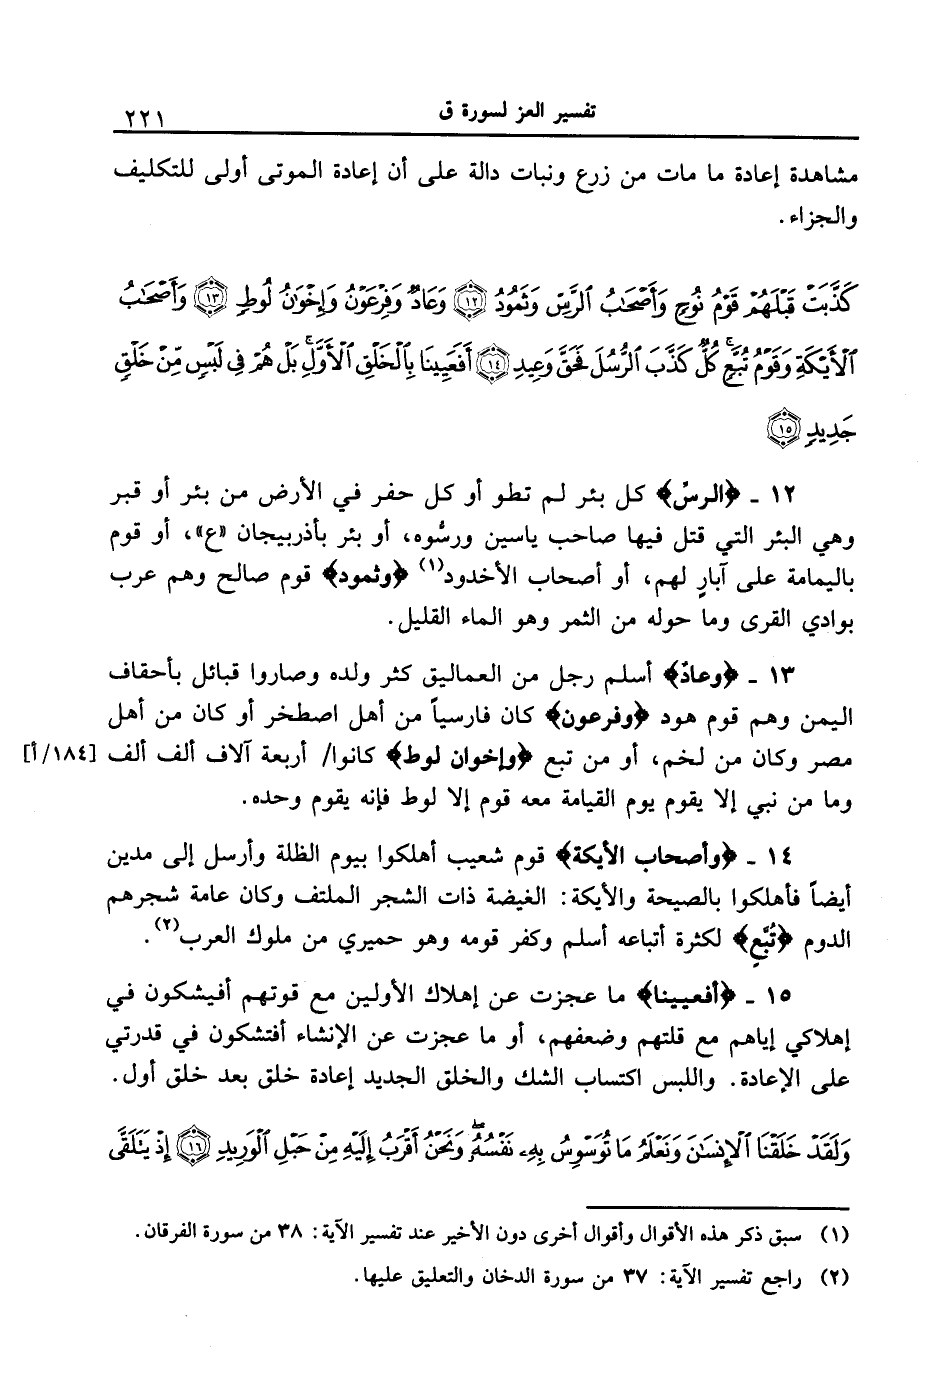 تفسير العز لسورة ق ٢٢١
مشاهدة إعادة ما مات من زرع ونبات دالة على أن إعادة الموتى أولى للتكليف
والجزاء .
كَذَّبَتْ قَبْلَهُمْ قَوْمُ نُوحٍ وَأَصْحَٰبُ ٱلرَّسِّ وَثَمُودُ ﴿١٢﴾ وَعَادٌ وَفِرْعَوْنُ وَإِخْوَٰنُ لُوطٍ ﴿١٣﴾ وَأَصْحَٰبُ
ٱلْأَيْكَةِ وَقَوْمُ تُبَّعٍ ۚ كُلٌّ كَذَّبَ ٱلرُّسُلَ فَحَقَّ وَعِيدِ ﴿١٤﴾ أَفَعَيِينَا بِٱلْخَلْقِ ٱلْأَوَّلِ ۚ بَلْ هُمْ فِى لَبْسٍ مِّنْ خَلْقٍ
جَدِيدٍ ﴿١٥﴾
١٢ ـ ﴿الرسّ﴾ كل بئر لم تطو أو كل حفر في الأرض من بئر أو قبر
وهي البئر التي قتل فيها صاحب ياسين ورسُّوه، أو بئر بأذربيجان «ع»، أو قوم
باليمامة على آبارٍ لهم، أو أصحاب الأخدود(١) ﴿وثمود﴾ قوم صالح وهم عرب
بوادي القرى وما حوله من الثمر وهو الماء القليل.
١٣ ـ ﴿وعادٌ﴾ أسلم رجل من العماليق كثر ولده وصاروا قبائل بأحقاف
اليمن وهم قوم هود ﴿وفرعون﴾ كان فارسياً من أهل اصطخر أو كان من أهل
مصر وكان من لخم، أو من تبع ﴿وإخوان لوط﴾ كانوا/ أربعة آلاف ألف ألف [١٨٤/أ]
وما من نبي إلا يقوم يوم القيامة معه قوم إلا لوط فإنه يقوم وحده.
١٤ ـ ﴿وأصحاب الأيكة﴾ قوم شعيب أهلكوا بيوم الظلة وأرسل إلى مدين
أيضاً فأهلكوا بالصيحة والأيكة: الغيضة ذات الشجر الملتف وكان عامة شجرهم
الدوم ﴿تُبَّعٍ﴾ لكثرة أتباعه أسلم وكفر قومه وهو حميري من ملوك العرب(٢).
١٥ ـ ﴿أفعيينا﴾ ما عجزت عن إهلاك الأولين مع قوتهم أفيشكون في
إهلاكي إياهم مع قلتهم وضعفهم، أو ما عجزت عن الإنشاء أفتشكون في قدرتي
على الإعادة. واللبس اكتساب الشك والخلق الجديد إعادة خلق بعد خلق أول.
وَلَقَدْ خَلَقْنَا ٱلْإِنسَٰنَ وَنَعْلَمُ مَا تُوَسْوِسُ بِهِۦ نَفْسُهُۥ ۖ وَنَحْنُ أَقْرَبُ إِلَيْهِ مِنْ حَبْلِ ٱلْوَرِيدِ ﴿١٦﴾ إِذْ يَتَلَقَّى
(١) سبق ذكر هذه الأقوال وأقوال أخرى دون الأخير عند تفسير الآية: ٣٨ من سورة الفرقان.
(٢) راجع تفسير الآية: ٣٧ من سورة الدخان والتعليق عليها.